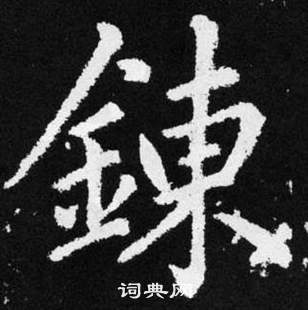 鍊
词典网